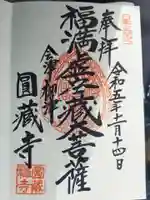 奉拝
令和五年十一月十四日
福満虚空蔵菩薩
会津柳津
圓藏寺